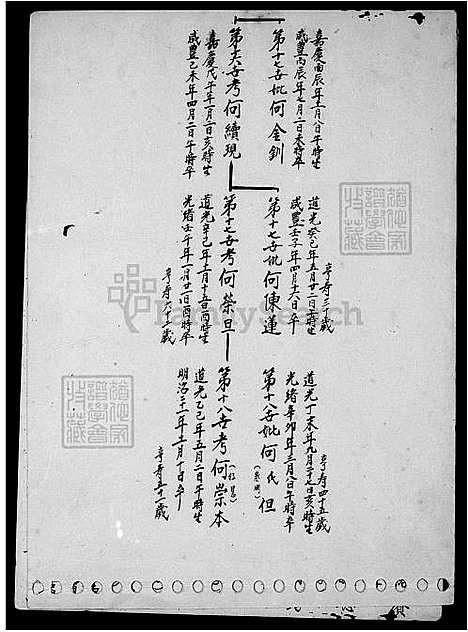 嘉慶丙辰年十一月八日午時生
咸豐丙辰年七月二日未時卒
第十七世妣何金釧
第十六世考何續現
嘉慶戊午年一月二日亥時生
咸豐己未年四月二日午時卒
享壽三十歲
道光癸巳年五月廿二日生
咸豐壬子年四月十六日卒
第十七世妣何陳蓮
第十七世考何榮旦
道光辛巳年十一月十五日酉時生
光緒壬午年一月廿一日酉時卒
享壽六十二歲
享壽四十五歲
道光丁未年九月二十七日亥時生
光緒辛卯年三月八日午時卒
第十八世妣何氏但
第十八世考何崇本
道光乙巳年五月二日午時生
明治三十一年十一月十日卒
享壽五十一歲
FamilySearch